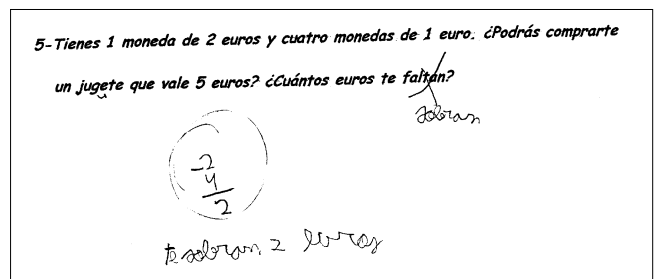 5-Tienes 1 moneda de 2 euros y cuatro monedas de 1 euro. ¿Podrás comprarte
un jugete que vale 5 euros? ¿Cuántos euros te faltan?
sobran
-2
4
2
te sobran 2 euros